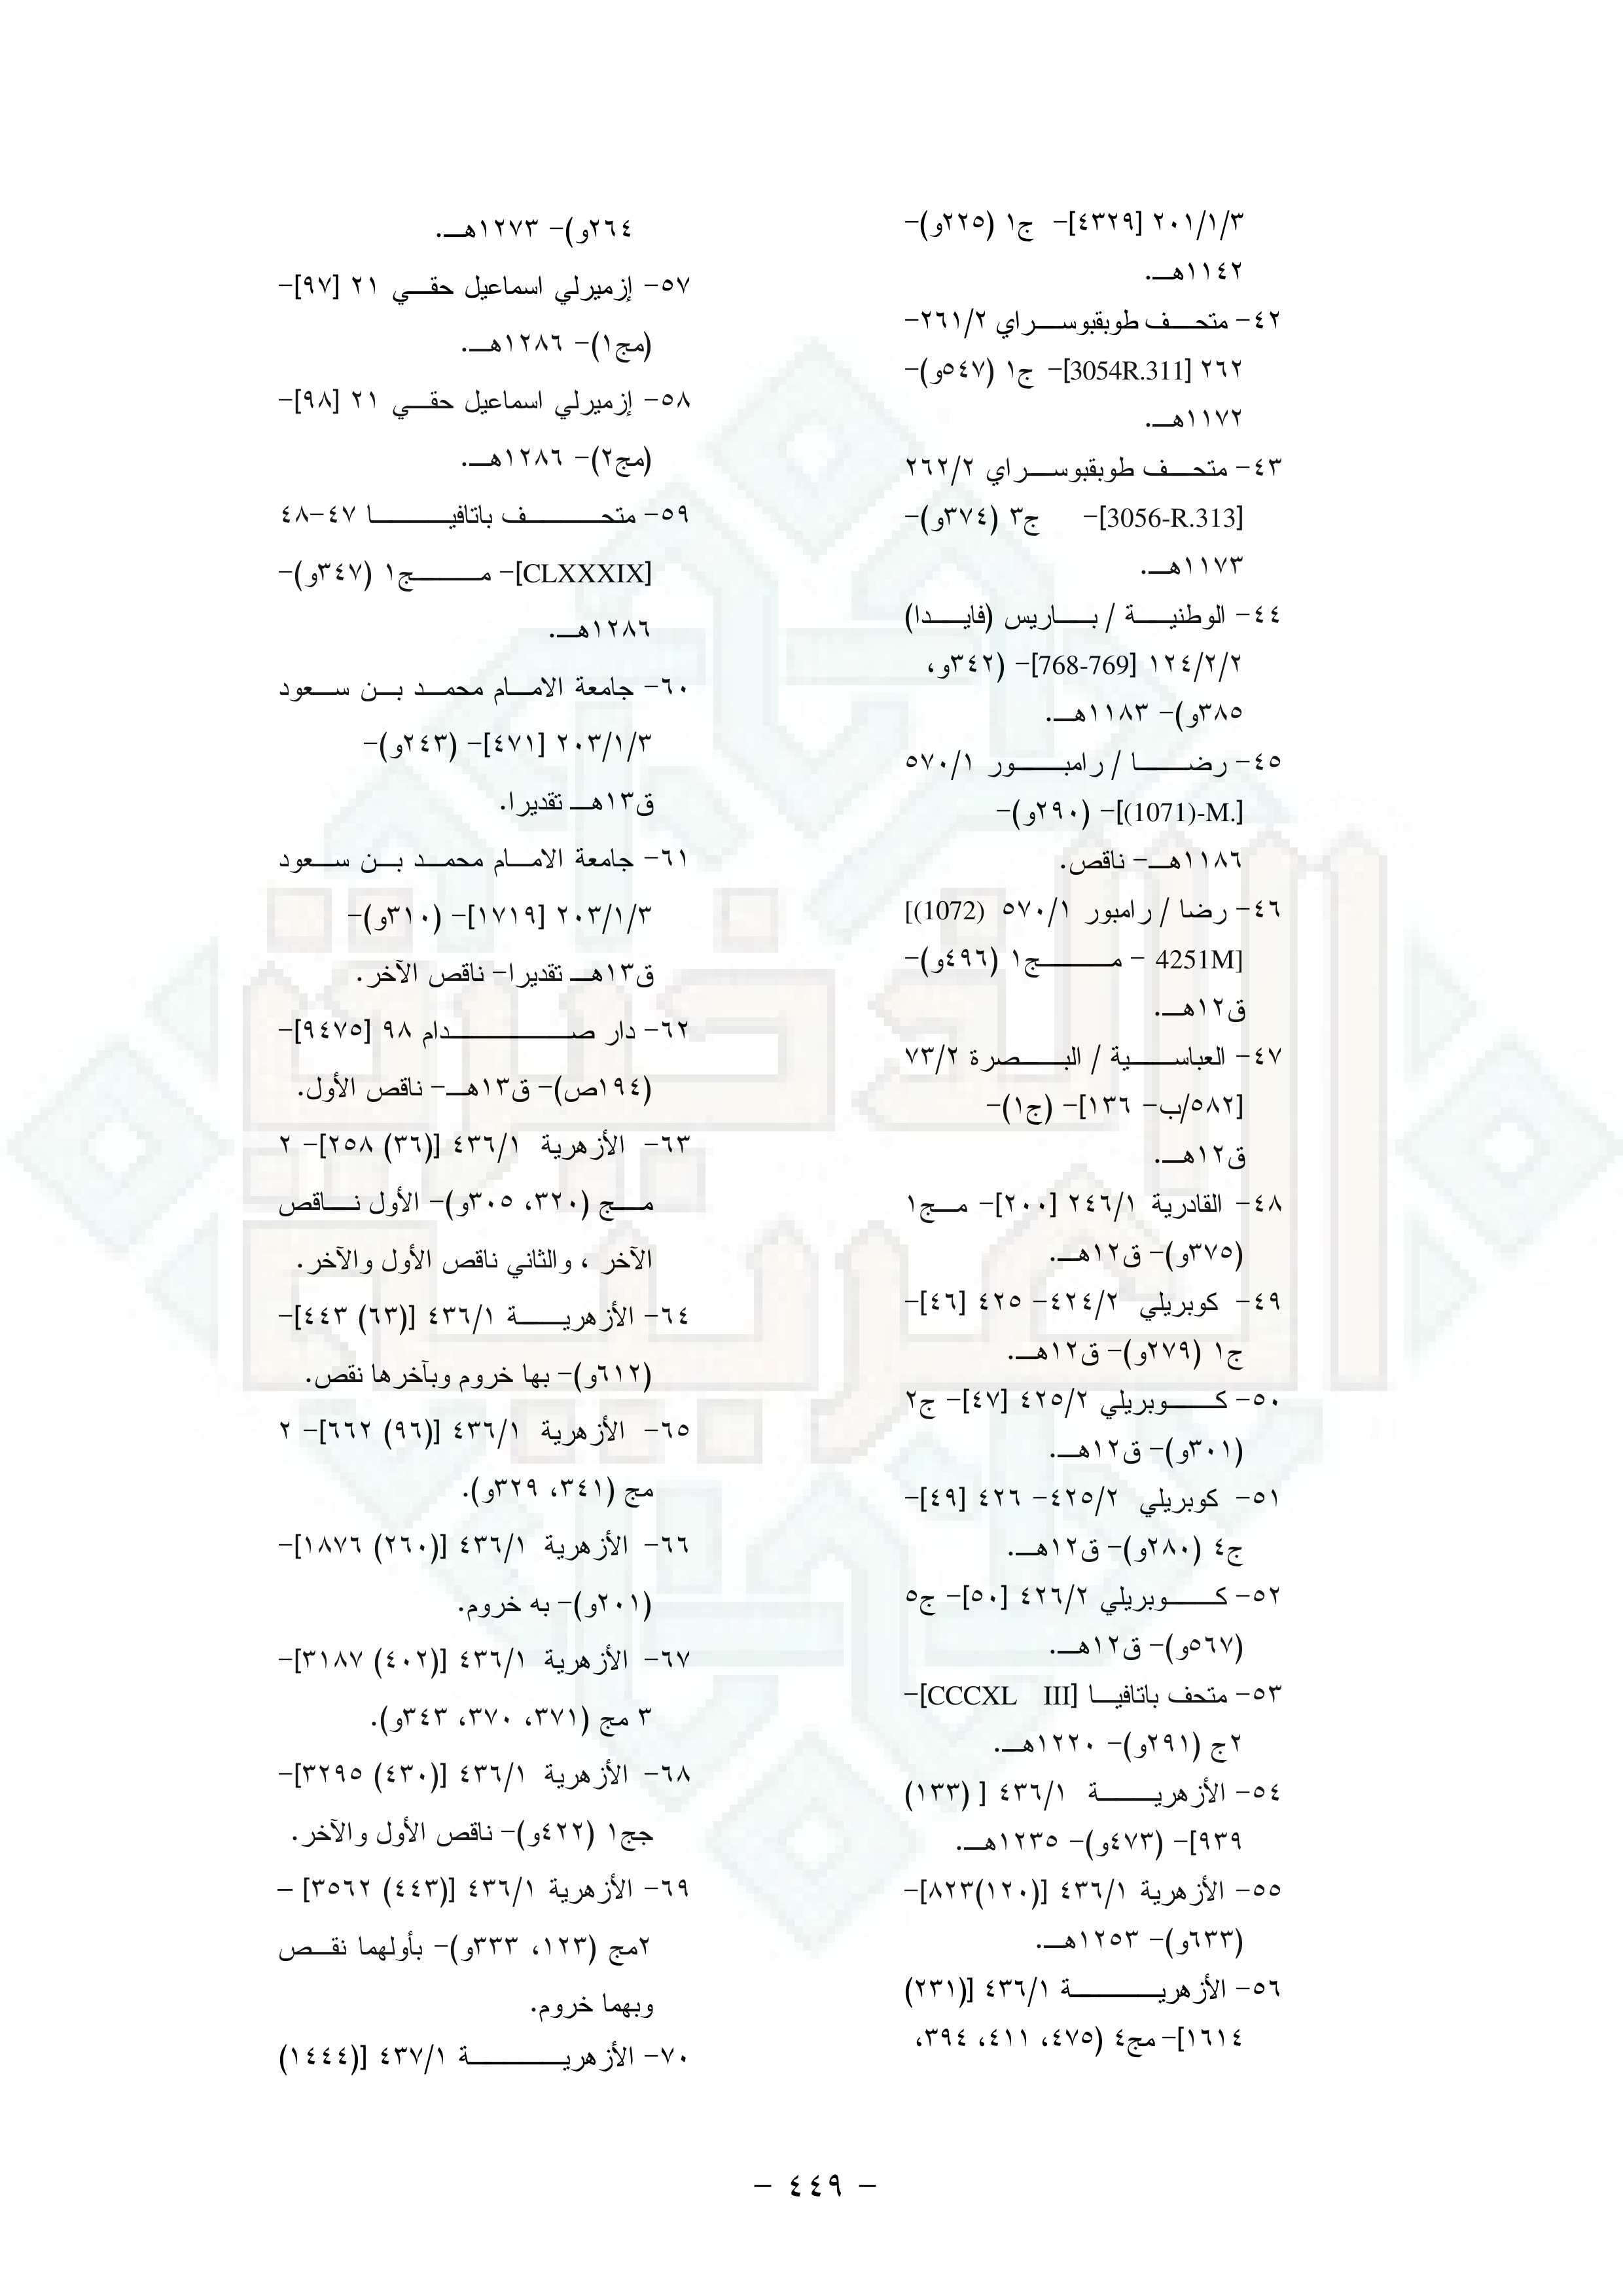 ٢٠١/١/٣ [٤٣٢٩]- ج١ (٢٢٥و)-
١١٤٢هـ.
٤٢- متحف طوبقبوسراي ٢٦١/٢-
٢٦٢ [3054R.311]- ج١ (٥٤٧و)-
١١٧٢هـ.
٤٣- متحف طوبقبوسراي ٢٦٢/٢
[3056-R.313]- ج٣ (٣٧٤و)-
١١٧٣هـ.
٤٤- الوطنية / باريس (فايدا)
١٢٤/٢/٢ [768-769]- (٣٤٢و،
٣٨٥و)- ١١٨٣هـ.
٤٥- رضا / رامبور ٥٧٠/١
[.M-(1071)]- (٢٩٠و)-
١١٨٦هـ- ناقص.
٤٦- رضا / رامبور ٥٧٠/١ (1072)]
4251M] - مج١ (٤٩٦و)-
ق١٢هـ.
٤٧- العباسية / البصرة ٧٣/٢
[٥٨٢/ب- ١٣٦]- (ج١)-
ق١٢هـ.
٤٨- القادرية ٢٤٦/١ [٢٠٠]- مج١
(٣٧٥و)- ق١٢هـ.
٤٩- كوبريلي ٤٢٤/٢- ٤٢٥ [٤٦]-
ج١ (٢٧٩و)- ق١٢هـ.
٥٠- كوبريلي ٤٢٥/٢ [٤٧]- ج٢
(٣٠١و)- ق١٢هـ.
٥١- كوبريلي ٤٢٥/٢- ٤٢٦ [٤٩]-
ج٤ (٢٨٠و)- ق١٢هـ.
٥٢- كوبريلي ٤٢٦/٢ [٥٠]- ج٥
(٥٦٧و)- ق١٢هـ.
٥٣- متحف باتافيا [CCCXL III]-
٢ج (٢٩١و)- ١٢٢٠هـ.
٥٤- الأزهرية ٤٣٦/١ [ (١٣٣)
٩٣٩]- (٤٧٣و)- ١٢٣٥هـ.
٥٥- الأزهرية ٤٣٦/١ [(١٢٠)٨٢٣]-
(٦٣٣و)- ١٢٥٣هـ.
٥٦- الأزهرية ٤٣٦/١ [(٢٣١)
١٦١٤]- مج٤ (٤٧٥، ٤١١، ٣٩٤،
٢٦٤و)- ١٢٧٣هـ.
٥٧- إزميرلي اسماعيل حقي ٢١ [٩٧]-
(مج١)- ١٢٨٦هـ.
٥٨- إزميرلي اسماعيل حقي ٢١ [٩٨]-
(مج٢)- ١٢٨٦هـ.
٥٩- متحف باتافيا ٤٧-٤٨
[CLXXXIX]- مج١ (٣٤٧و)-
١٢٨٦هـ.
٦٠- جامعة الامام محمد بن سعود
٢٠٣/١/٣ [٤٧١]- (٢٤٣و)-
ق١٣هـ تقديرا.
٦١- جامعة الامام محمد بن سعود
٢٠٣/١/٣ [١٧١٩]- (٣١٠و)-
ق١٣هـ تقديرا- ناقص الآخر.
٦٢- دار صدام ٩٨ [٩٤٧٥]-
(١٩٤ص)- ق١٣هـ- ناقص الأول.
٦٣- الأزهرية ٤٣٦/١ [(٣٦) ٢٥٨]- ٢
مج (٣٢٠، ٣٠٥و)- الأول ناقص
الآخر ، والثاني ناقص الأول والآخر.
٦٤- الأزهرية ٤٣٦/١ [(٦٣) ٤٤٣]-
(٦١٢و)- بها خروم وبآخرها نقص.
٦٥- الأزهرية ٤٣٦/١ [(٩٦) ٦٦٢]- ٢
مج (٣٤١، ٣٢٩و).
٦٦- الأزهرية ٤٣٦/١ [(٢٦٠) ١٨٧٦]-
(٢٠١و)- به خروم.
٦٧- الأزهرية ٤٣٦/١ [(٤٠٢) ٣١٨٧]-
٣ مج (٣٧١، ٣٧٠، ٣٤٣و).
٦٨- الأزهرية ٤٣٦/١ [(٤٣٠) ٣٢٩٥]-
جج١ (٤٢٢و)- ناقص الأول والآخر.
٦٩- الأزهرية ٤٣٦/١ [(٤٤٣) ٣٥٦٢] –
٢مج (١٢٣، ٣٣٣و)- بأولهما نقص
وبهما خروم.
٧٠- الأزهرية ٤٣٧/١ [(١٤٤٤)
- ٤٤٩ -
الذخيرة
العربية